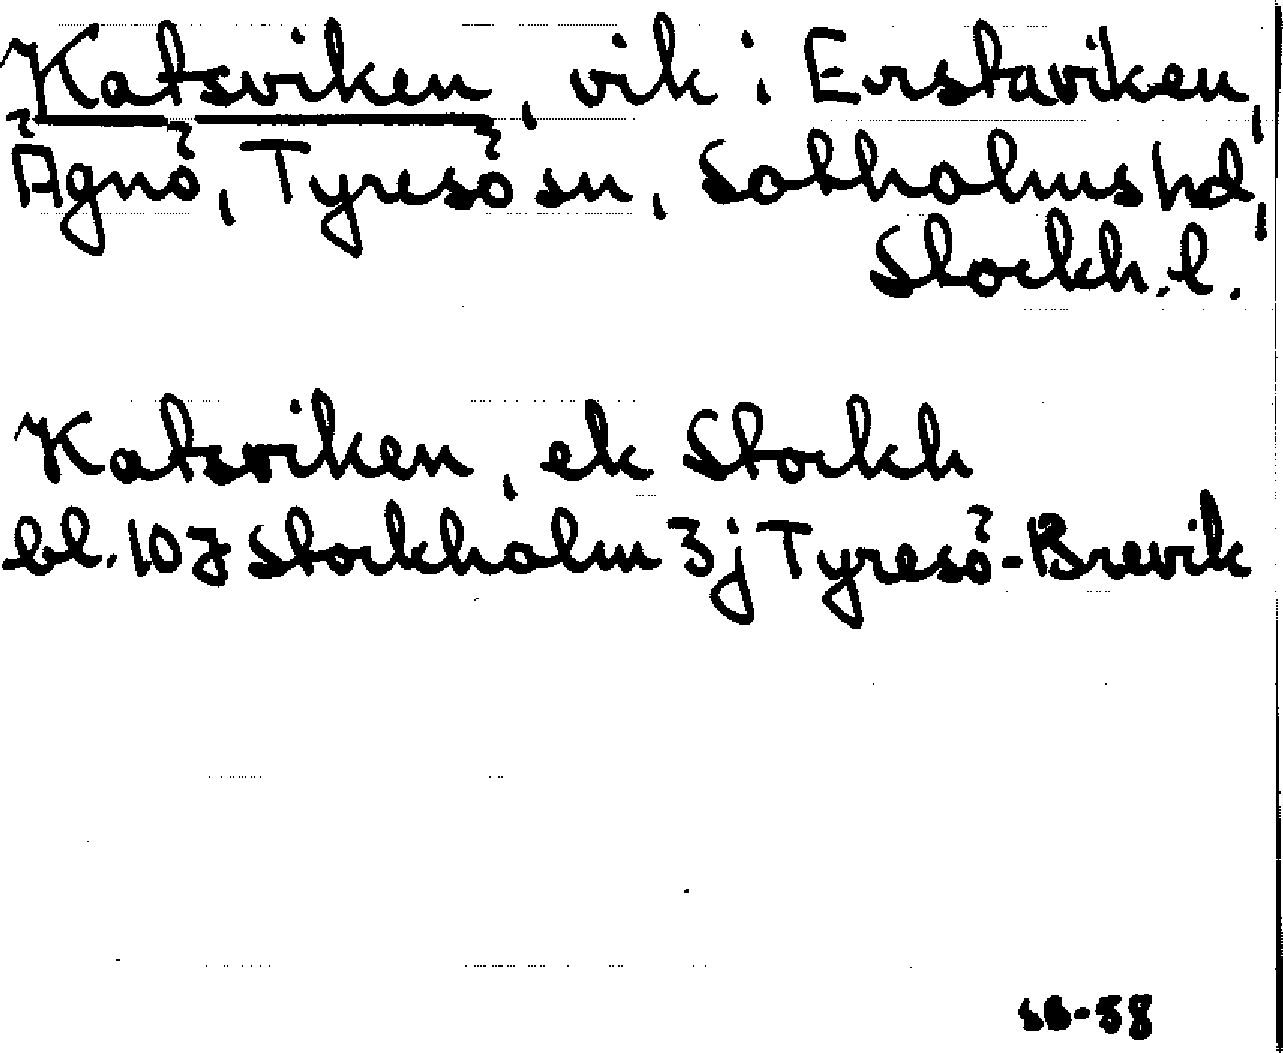 Katsviken, vik i Erstaviken,
Ägnö, Tyresö sn, Sotholms hd,
Stockh. l.
Katsviken, ek Stockh
bl. 10J Stockholm 3j Tyresö-Brevik